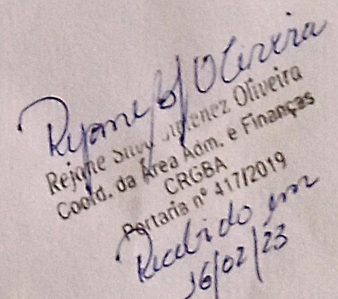 Rejane S J Oliveira
Rejane Silva Jimenez Oliveira
Coord. da Área Adm. e Finanças
CRGBA
Portaria nº 417/2019
Recebido em
16/02/23